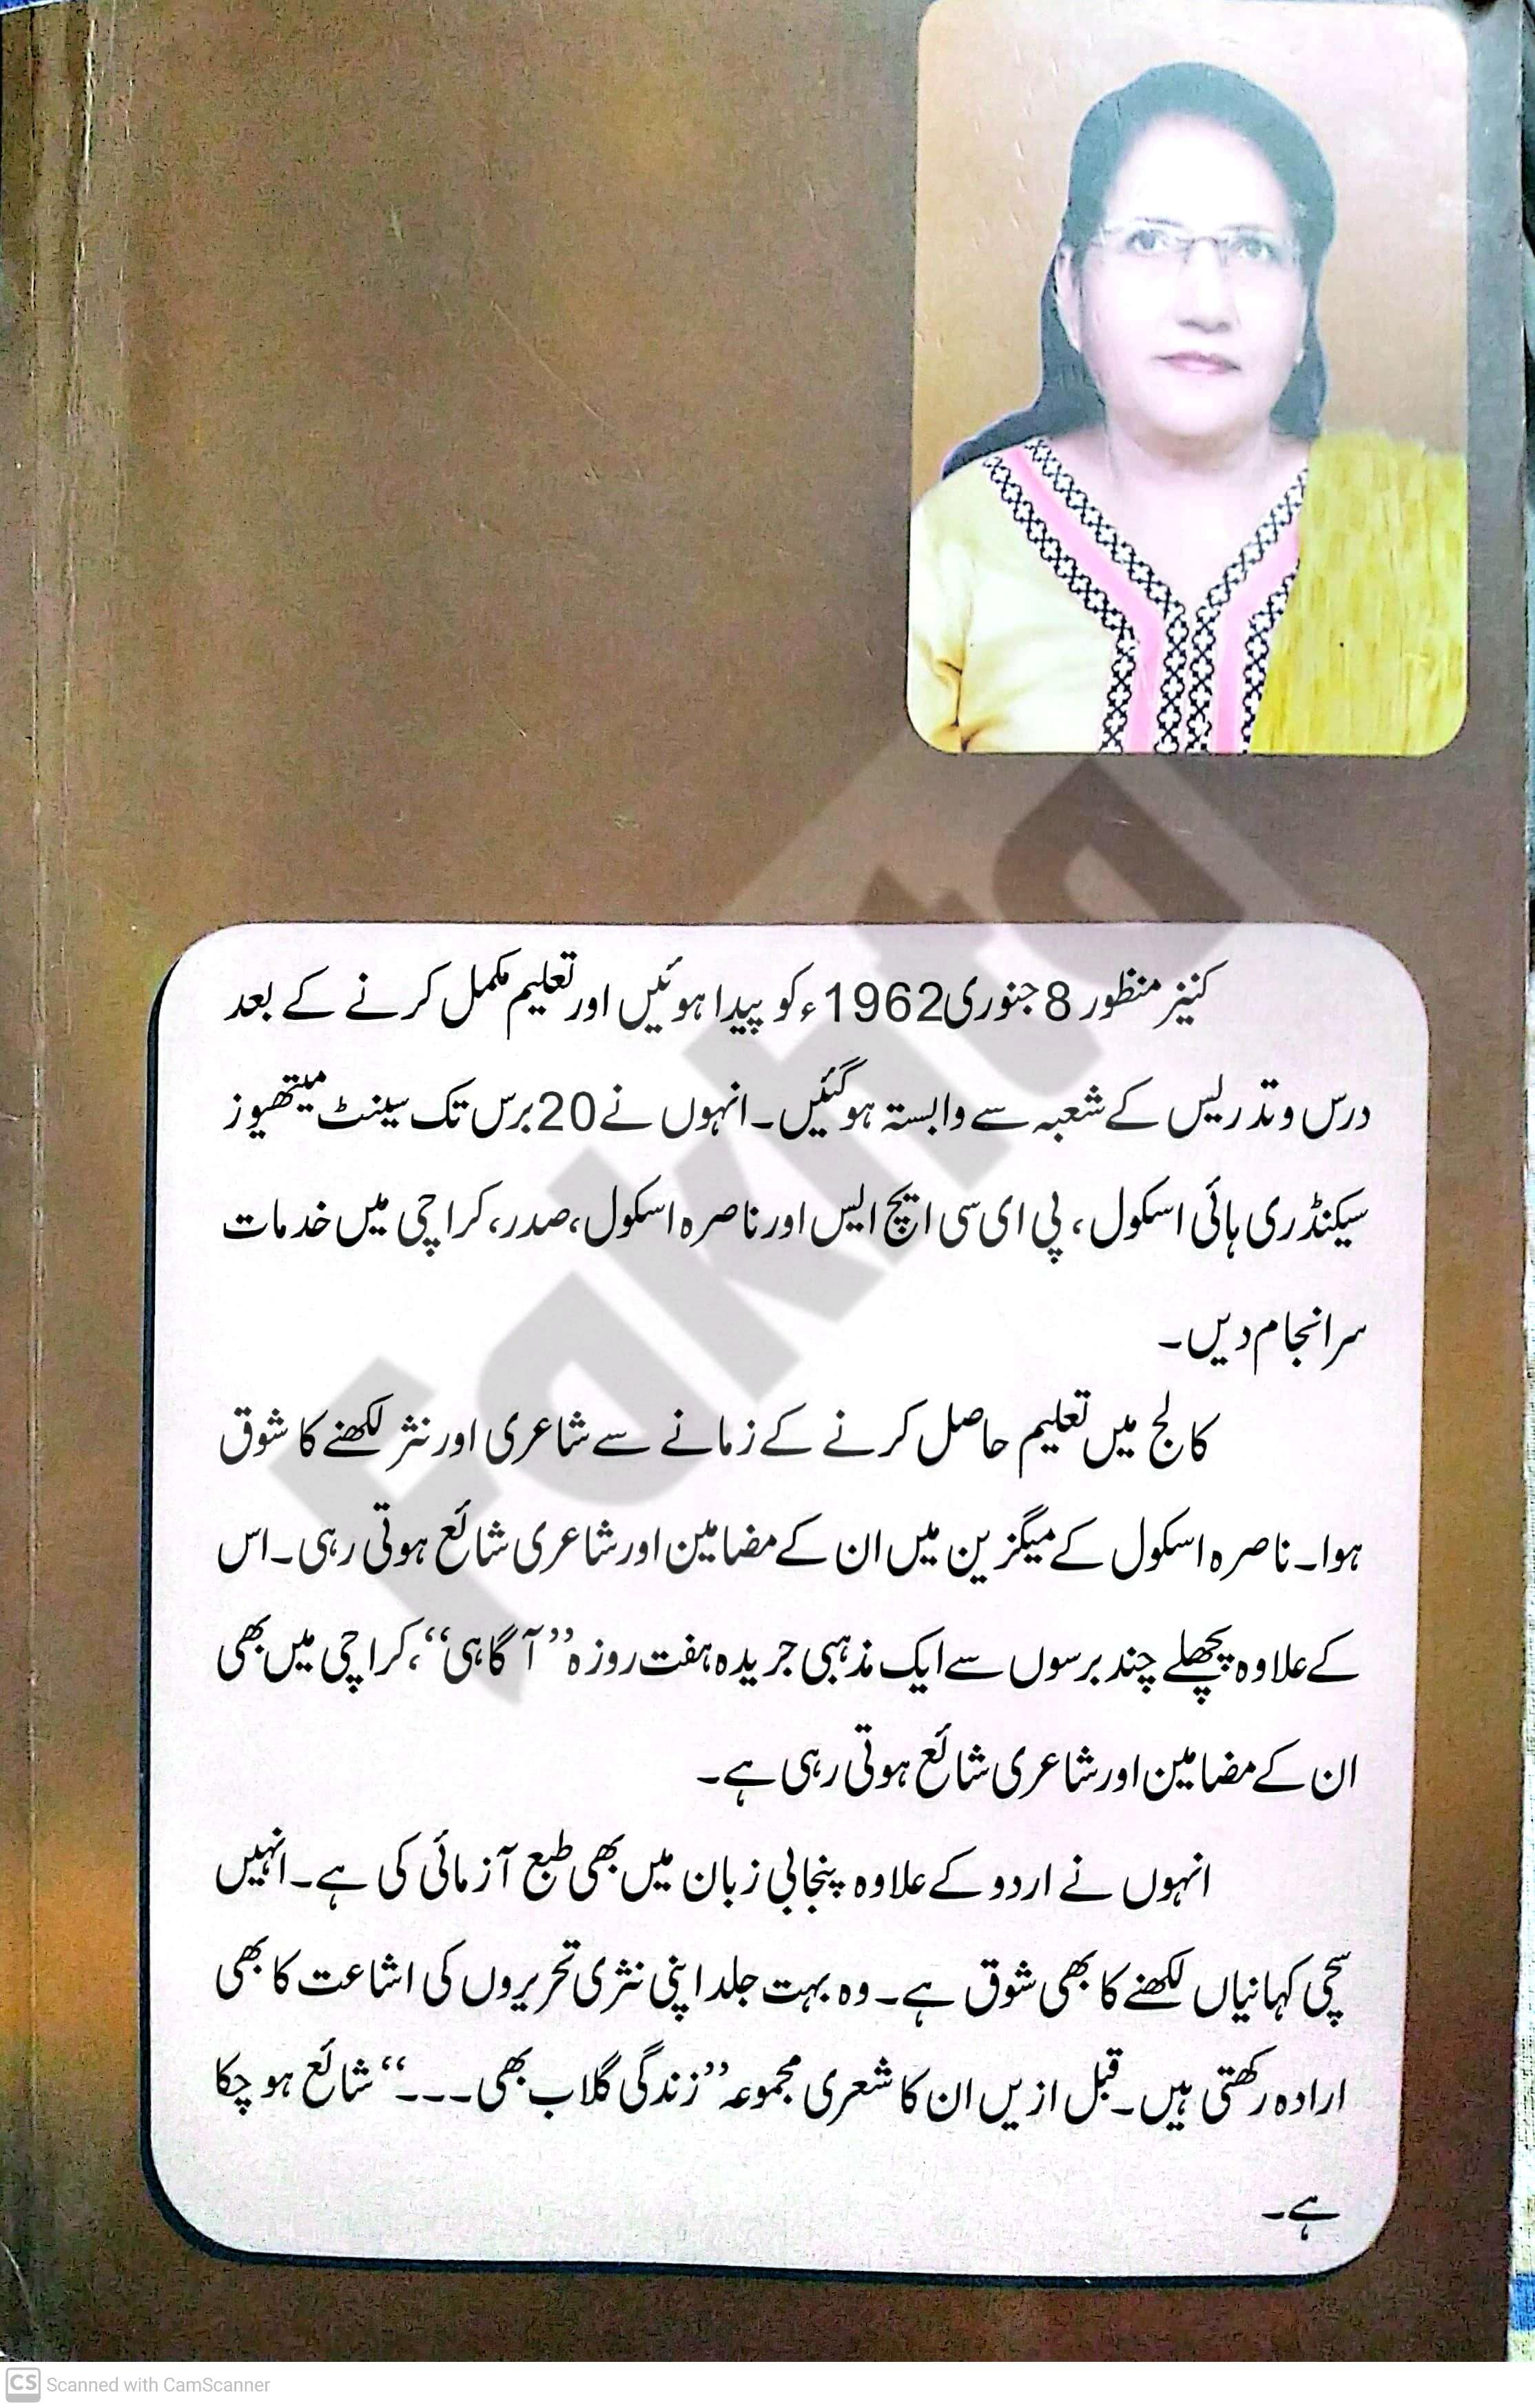 کنیز منظور 8 جنوری 1962ء کو پیدا ہوئیں اور تعلیم مکمل کرنے کے بعد
درس و تدریس کے شعبہ سے وابستہ ہوگئیں۔ انہوں نے 20 برس تک سینٹ میتھیوز
سیکنڈری ہائی اسکول، پی ای سی ایچ ایس اور ناصرہ اسکول، صدر، کراچی میں خدمات
سرانجام دیں۔
کالج میں تعلیم حاصل کرنے کے زمانے سے شاعری اور نثر لکھنے کا شوق
ہوا۔ ناصرہ اسکول کے میگزین میں ان کے مضامین اور شاعری شائع ہوتی رہی۔ اس
کے علاوہ پچھلے چند برسوں سے ایک مذہبی جریدہ ہفت روزہ ’’آگاہی‘‘، کراچی میں بھی
ان کے مضامین اور شاعری شائع ہوتی رہی ہے۔
انہوں نے اردو کے علاوہ پنجابی زبان میں بھی طبع آزمائی کی ہے۔ انہیں
سچی کہانیاں لکھنے کا بھی شوق ہے۔ وہ بہت جلد اپنی نثری تحریروں کی اشاعت کا بھی
ارادہ رکھتی ہیں۔ قبل ازیں ان کا شعری مجموعہ ’’زندگی گلاب بھی۔۔۔‘‘ شائع ہو چکا
ہے۔
Fakhta
CS Scanned with CamScanner